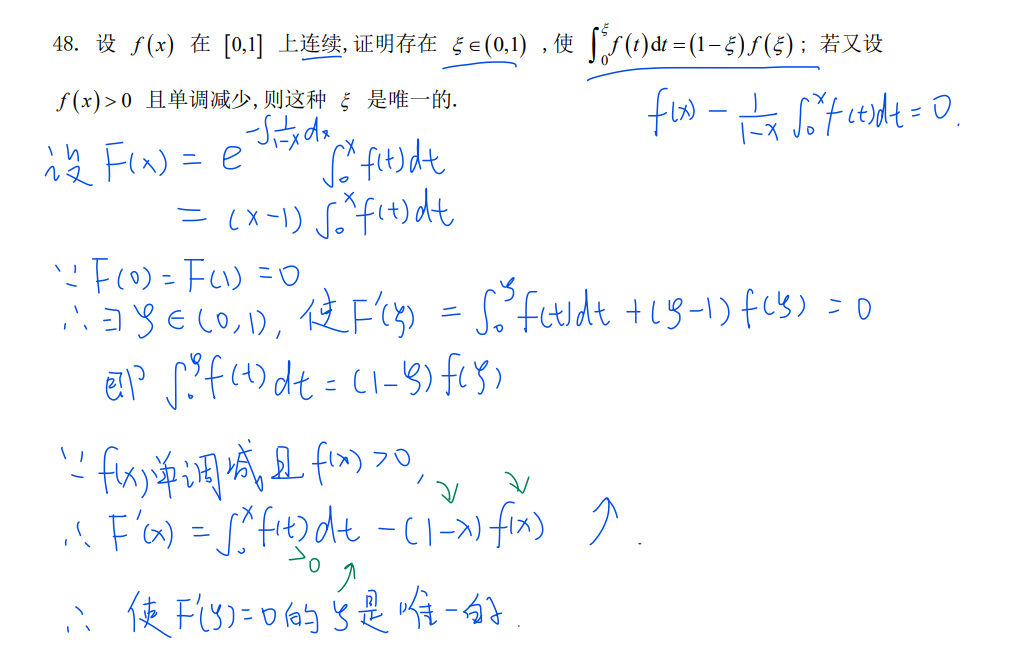 48. 设 f(x) 在 [0,1] 上连续,证明存在 ξ∈(0,1) ,使 ∫₀^ξ f(t)dt=(1−ξ)f(ξ)；若又设
f(x)>0 且单调减少,则这种 ξ 是唯一的.
f(x) − 1/(1−x) ∫₀^x f(t)dt = 0.
设 F(x) = e^(−∫1/(1−x) dx) ∫₀^x f(t)dt
= (x−1) ∫₀^x f(t)dt
∵ F(0) = F(1) = 0
∴ ∃ ξ ∈ (0,1), 使 F′(ξ) = ∫₀^ξ f(t)dt + (ξ−1) f(ξ) = 0
即 ∫₀^ξ f(t)dt = (1−ξ) f(ξ)
∵ f(x)单调减且 f(x) >0,
∴ F′(x) = ∫₀^x f(t)dt − (1−x) f(x) ↗.
>0 ↗ ↘ ↘
∴ 使 F′(ξ)=0 的 ξ 是唯一的.